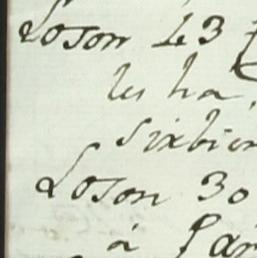 Loson 43
les ha
sixbien
Loson 30
à Par